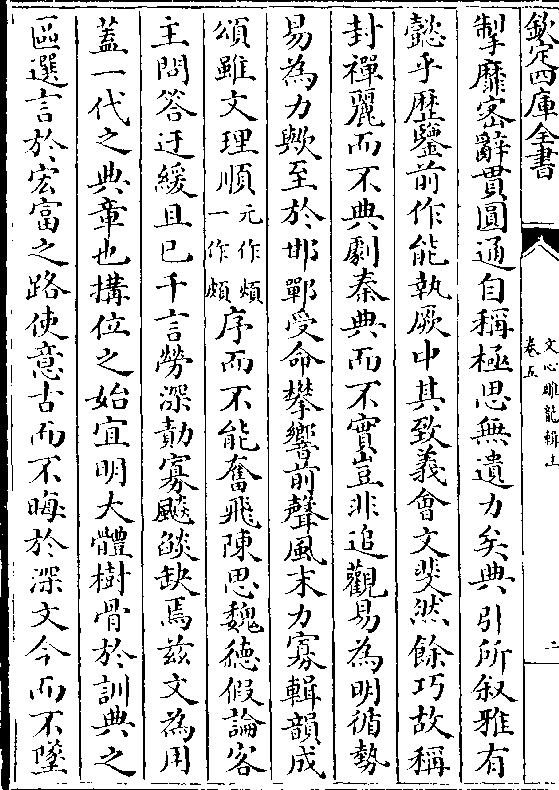 欽定四庫全書
文心雕龍輯注
卷五
二
掣靡宻辭貫圓通自稱極思無遺力矣典引所叙雅有
懿乎歴鑒前作能執厥中其致義會文斐然餘巧故稱
封禪麗而不典劇秦典而不實豈非追觀易為明循勢
易為力歟至於邯鄲受命攀響前聲風末力寡輯韻成
頌雖文理順元作頗一作頗序而不能奮飛陳思魏徳假論客
主問答迂緩且已千言勞深勣寡飈燄缺焉兹文為用
蓋一代之典章也搆位之始宜明大體樹骨於訓典之
區選言於宏富之路使意古而不晦於深文今而不墜